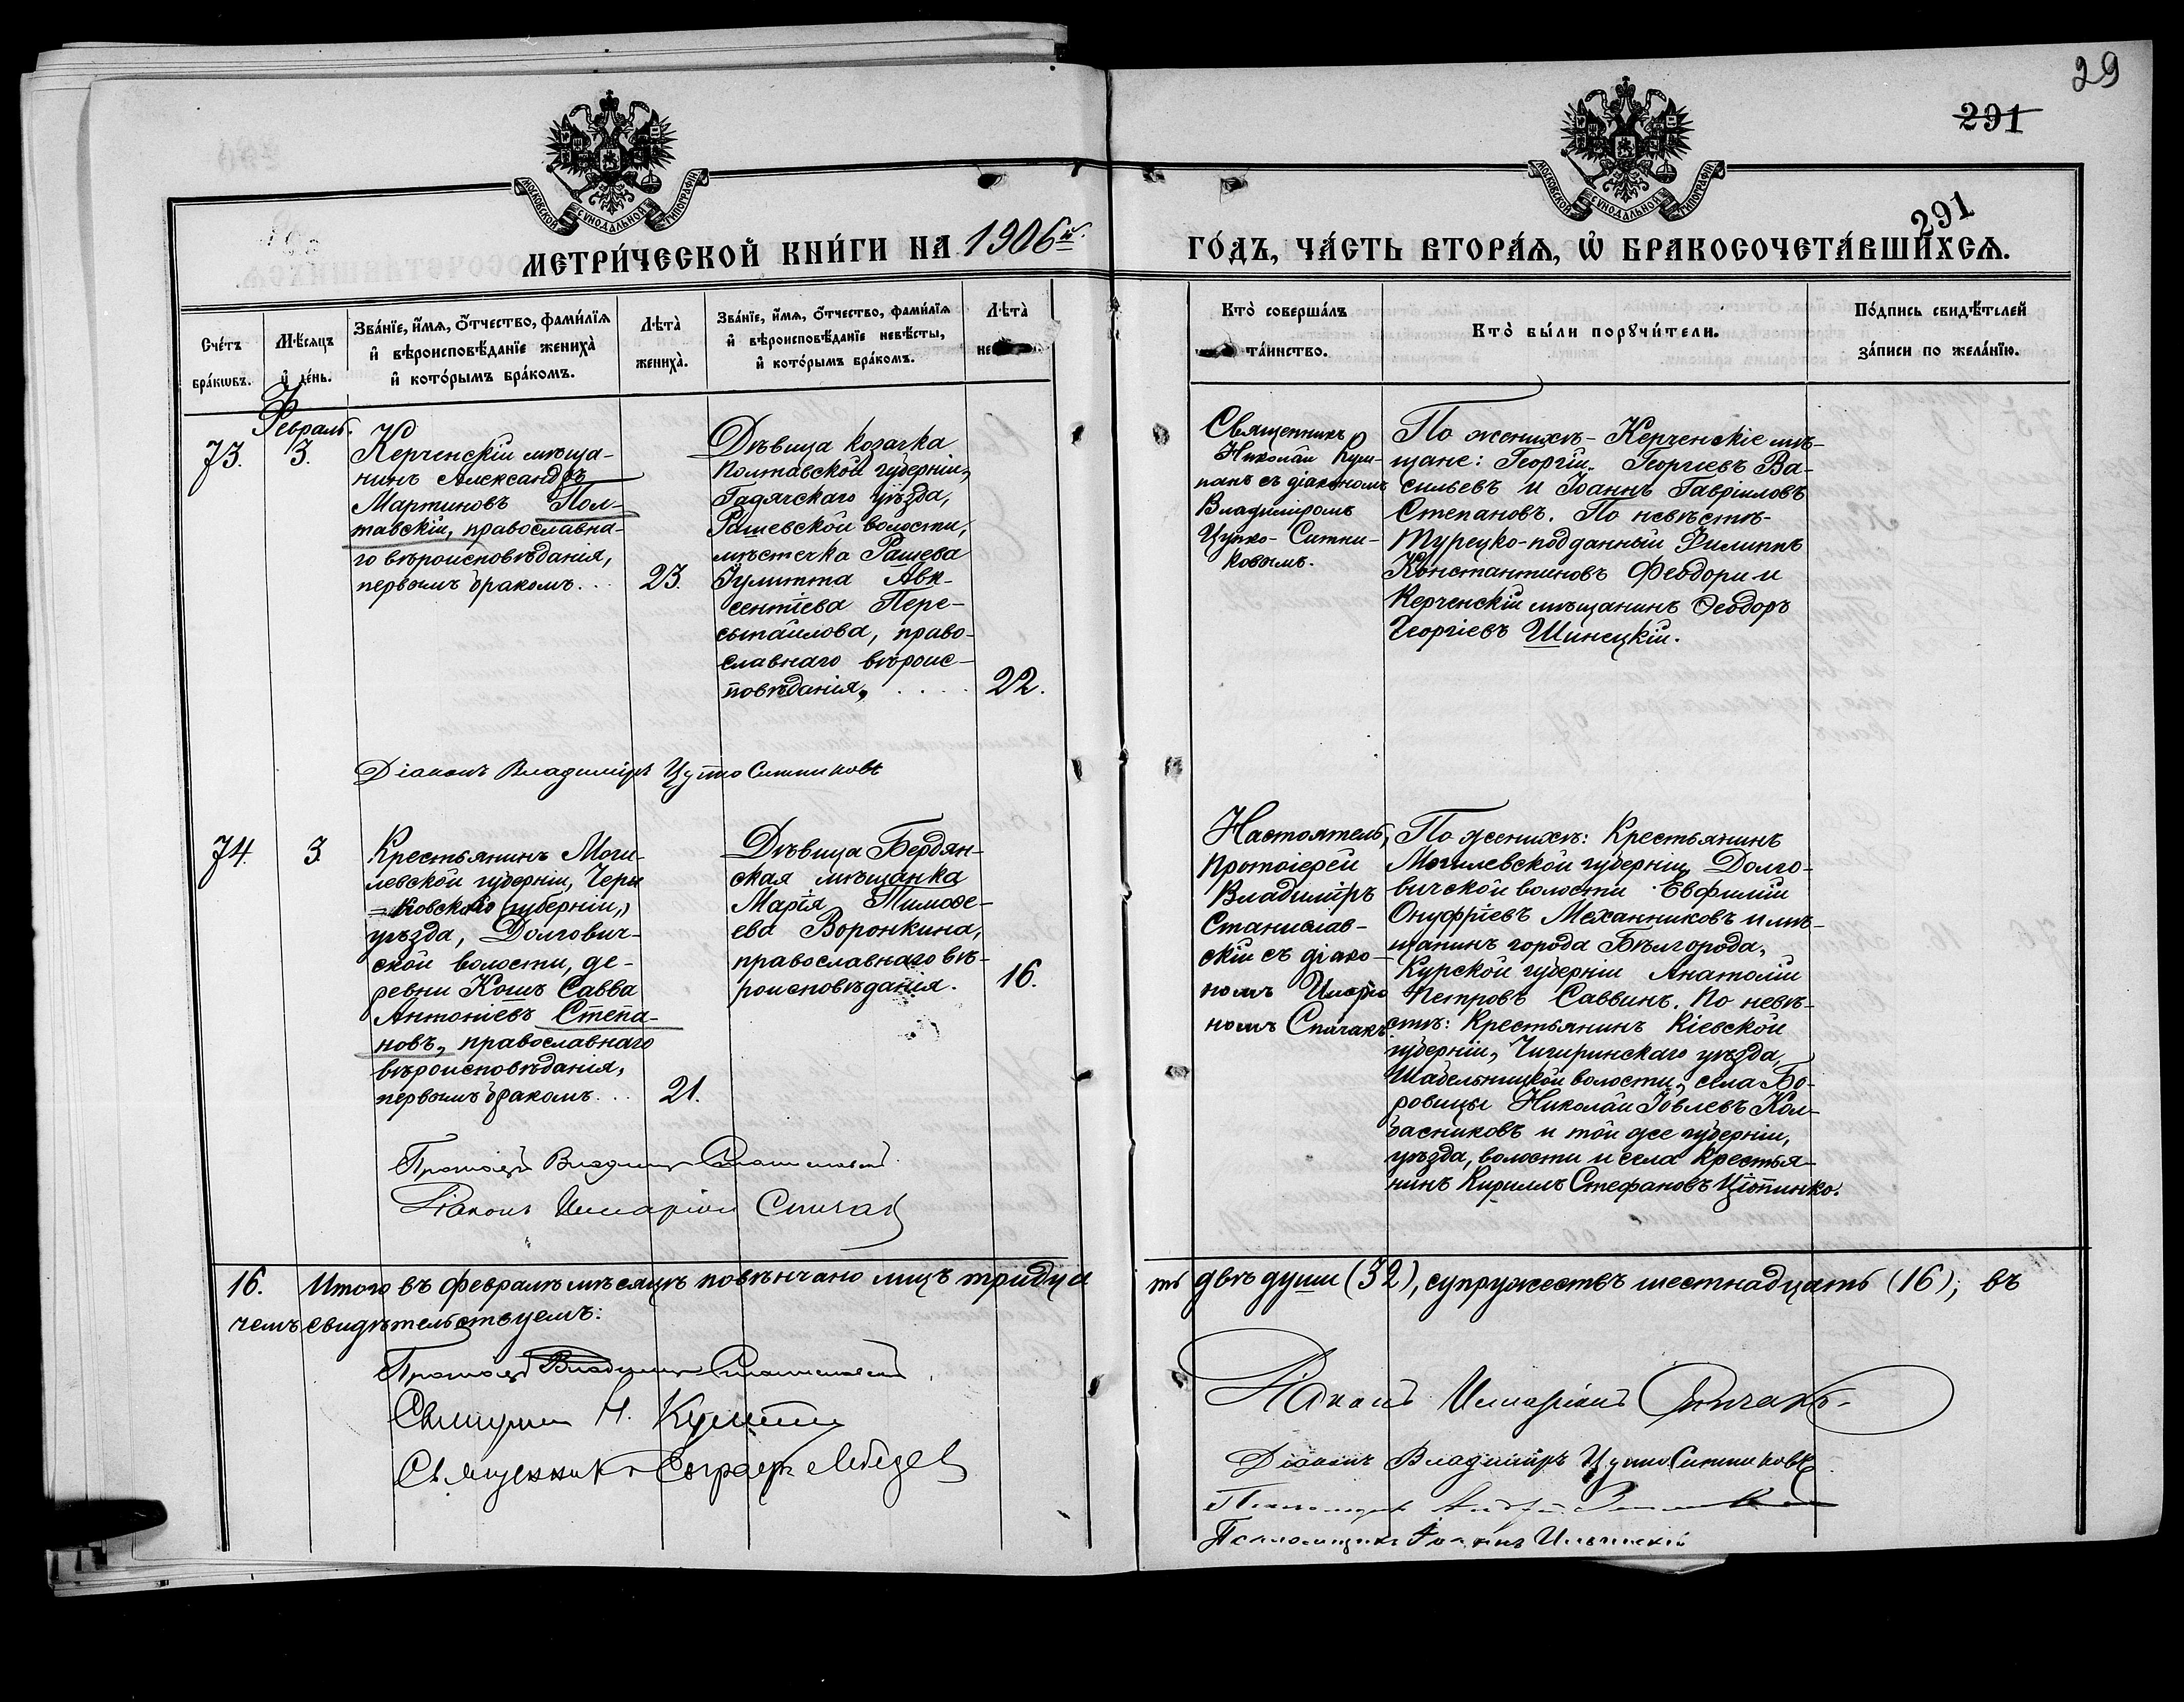 29
291
291
МОСКОВСКОЙ СѴНОДАЛЬНОЙ ТИПОГРАФІИ
МОСКОВСКОЙ СѴНОДАЛЬНОЙ ТИПОГРАФІИ
МЕТРИ́ЧЕСКОЙ КНИ́ГИ НА 1906й
ГО́ДЪ, ЧА́СТЬ ВТОРА́Ѧ, Ѡ҆ БРАКОСОЧЕТА́ВШИХСѦ.
Сче́тъ
бра́кѡвъ.
Мѣ́сяцъ
и҆ де́нь.
Зва́нїе, и҆́мѧ, ѻ҆́тчество, фами́лїѧ
и҆ вѣроисповѣ́данїе жениха̀
и҆ кото́рымъ бра́комъ.
Лѣта̀
жениха̀.
Зва́нїе, и҆́мѧ, ѻ҆́тчество, фами́лїѧ
и҆ вѣроисповѣ́данїе невѣ́сты,
и҆ кото́рымъ бра́комъ.
Лѣта̀
Кто̀ соверша́лъ
та́инство.
Кто̀ бы́ли порꙋчи́тели.
По́дпись свидѣ́телей
за́писи по жела́нїю.
Февраль.
73.
3.
Керченскій мѣща-
нинъ Александръ
Мартиновъ Пол-
тавскій, православна-
го вѣроисповѣданія,
первымъ бракомъ...
23.
Дѣвица козачка
Полтавской губерніи,
Гадячскаго уѣзда,
Рашевской волости,
мѣстечка Рашева
Іулитта Авк-
сентіева Пере-
сыпайлова, право-
славнаго вѣроис-
повѣданія, . . . .
22.
Священникъ
Николай Куш-
панъ съ діакономъ
Владиміромъ
Цупко-Ситни-
ковымъ.
По женихѣ - Керченскіе мѣ-
щане: Георгій Георгіевъ Ва-
сильевъ и Іоаннъ Гавріиловъ
Степановъ. По невѣстѣ-
Турецко-подданный Филиппъ
Константиновъ Феодори и
Керченскій мѣщанинъ Ѳеодоръ
Георгіевъ Шинецкій.
Діаконъ Владиміръ Цупко Ситниковъ
74.
3.
Крестьянинъ Моги-
левской губерніи, Чери
=ковскаго (губерніи,)
уѣзда, Долгович-
ской волости, де-
ревни Кошъ Савва
Антоніевъ Степа-
новъ, православнаго
вѣроисповѣданія,
первымъ бракомъ...
21.
Дѣвица Бердян-
ская мѣщанка
Марія Тимоѳе-
ева Воронкина,
православнаго вѣ-
роисповѣданія.
16.
Настоятель,
Протоіерей
Владиміръ
Станислав-
скій съ діако-
номъ Иларіо
номъ Спичакъ
По женихѣ: Крестьянинъ
Могилевской губерніи, Долго-
вичской волости Евфимій
Онуфріевъ Механниковъ и мѣ-
щанинъ города Бѣлгорода,
Курской губерніи Анатолій
Петровъ Саввинъ. По невѣ-
стѣ: Крестьянинъ Кіевской
губерніи, Чигиринскаго уѣзда,
Шабельницкой волости, села Бо-
ровицы Николай Іовлевъ Кол-
басниковъ и той же губерніи,
уѣзда, волости и села Крестья-
нинъ Кириллъ Стефановъ Цюпинко.
Протоіерей Владиміръ Станиславскій
Діаконъ Иларіонъ Спичакъ
16. Итого въ февралѣ мѣсяцѣ повѣнчано лицъ тридца
ть двѣ души (32), супружествъ шестнадцать (16), въ
чемъ свидѣтельствуемъ:
Протоіерей Владиміръ Станиславскій
Священникъ Н.
Священникъ Евграфъ Лебедев
Діаконъ Иларіонъ Спичакъ
Діаконъ Владиміръ Цупко Ситниковъ
Псаломщикъ
Псаломщикъ Іоаннъ Ильинскій